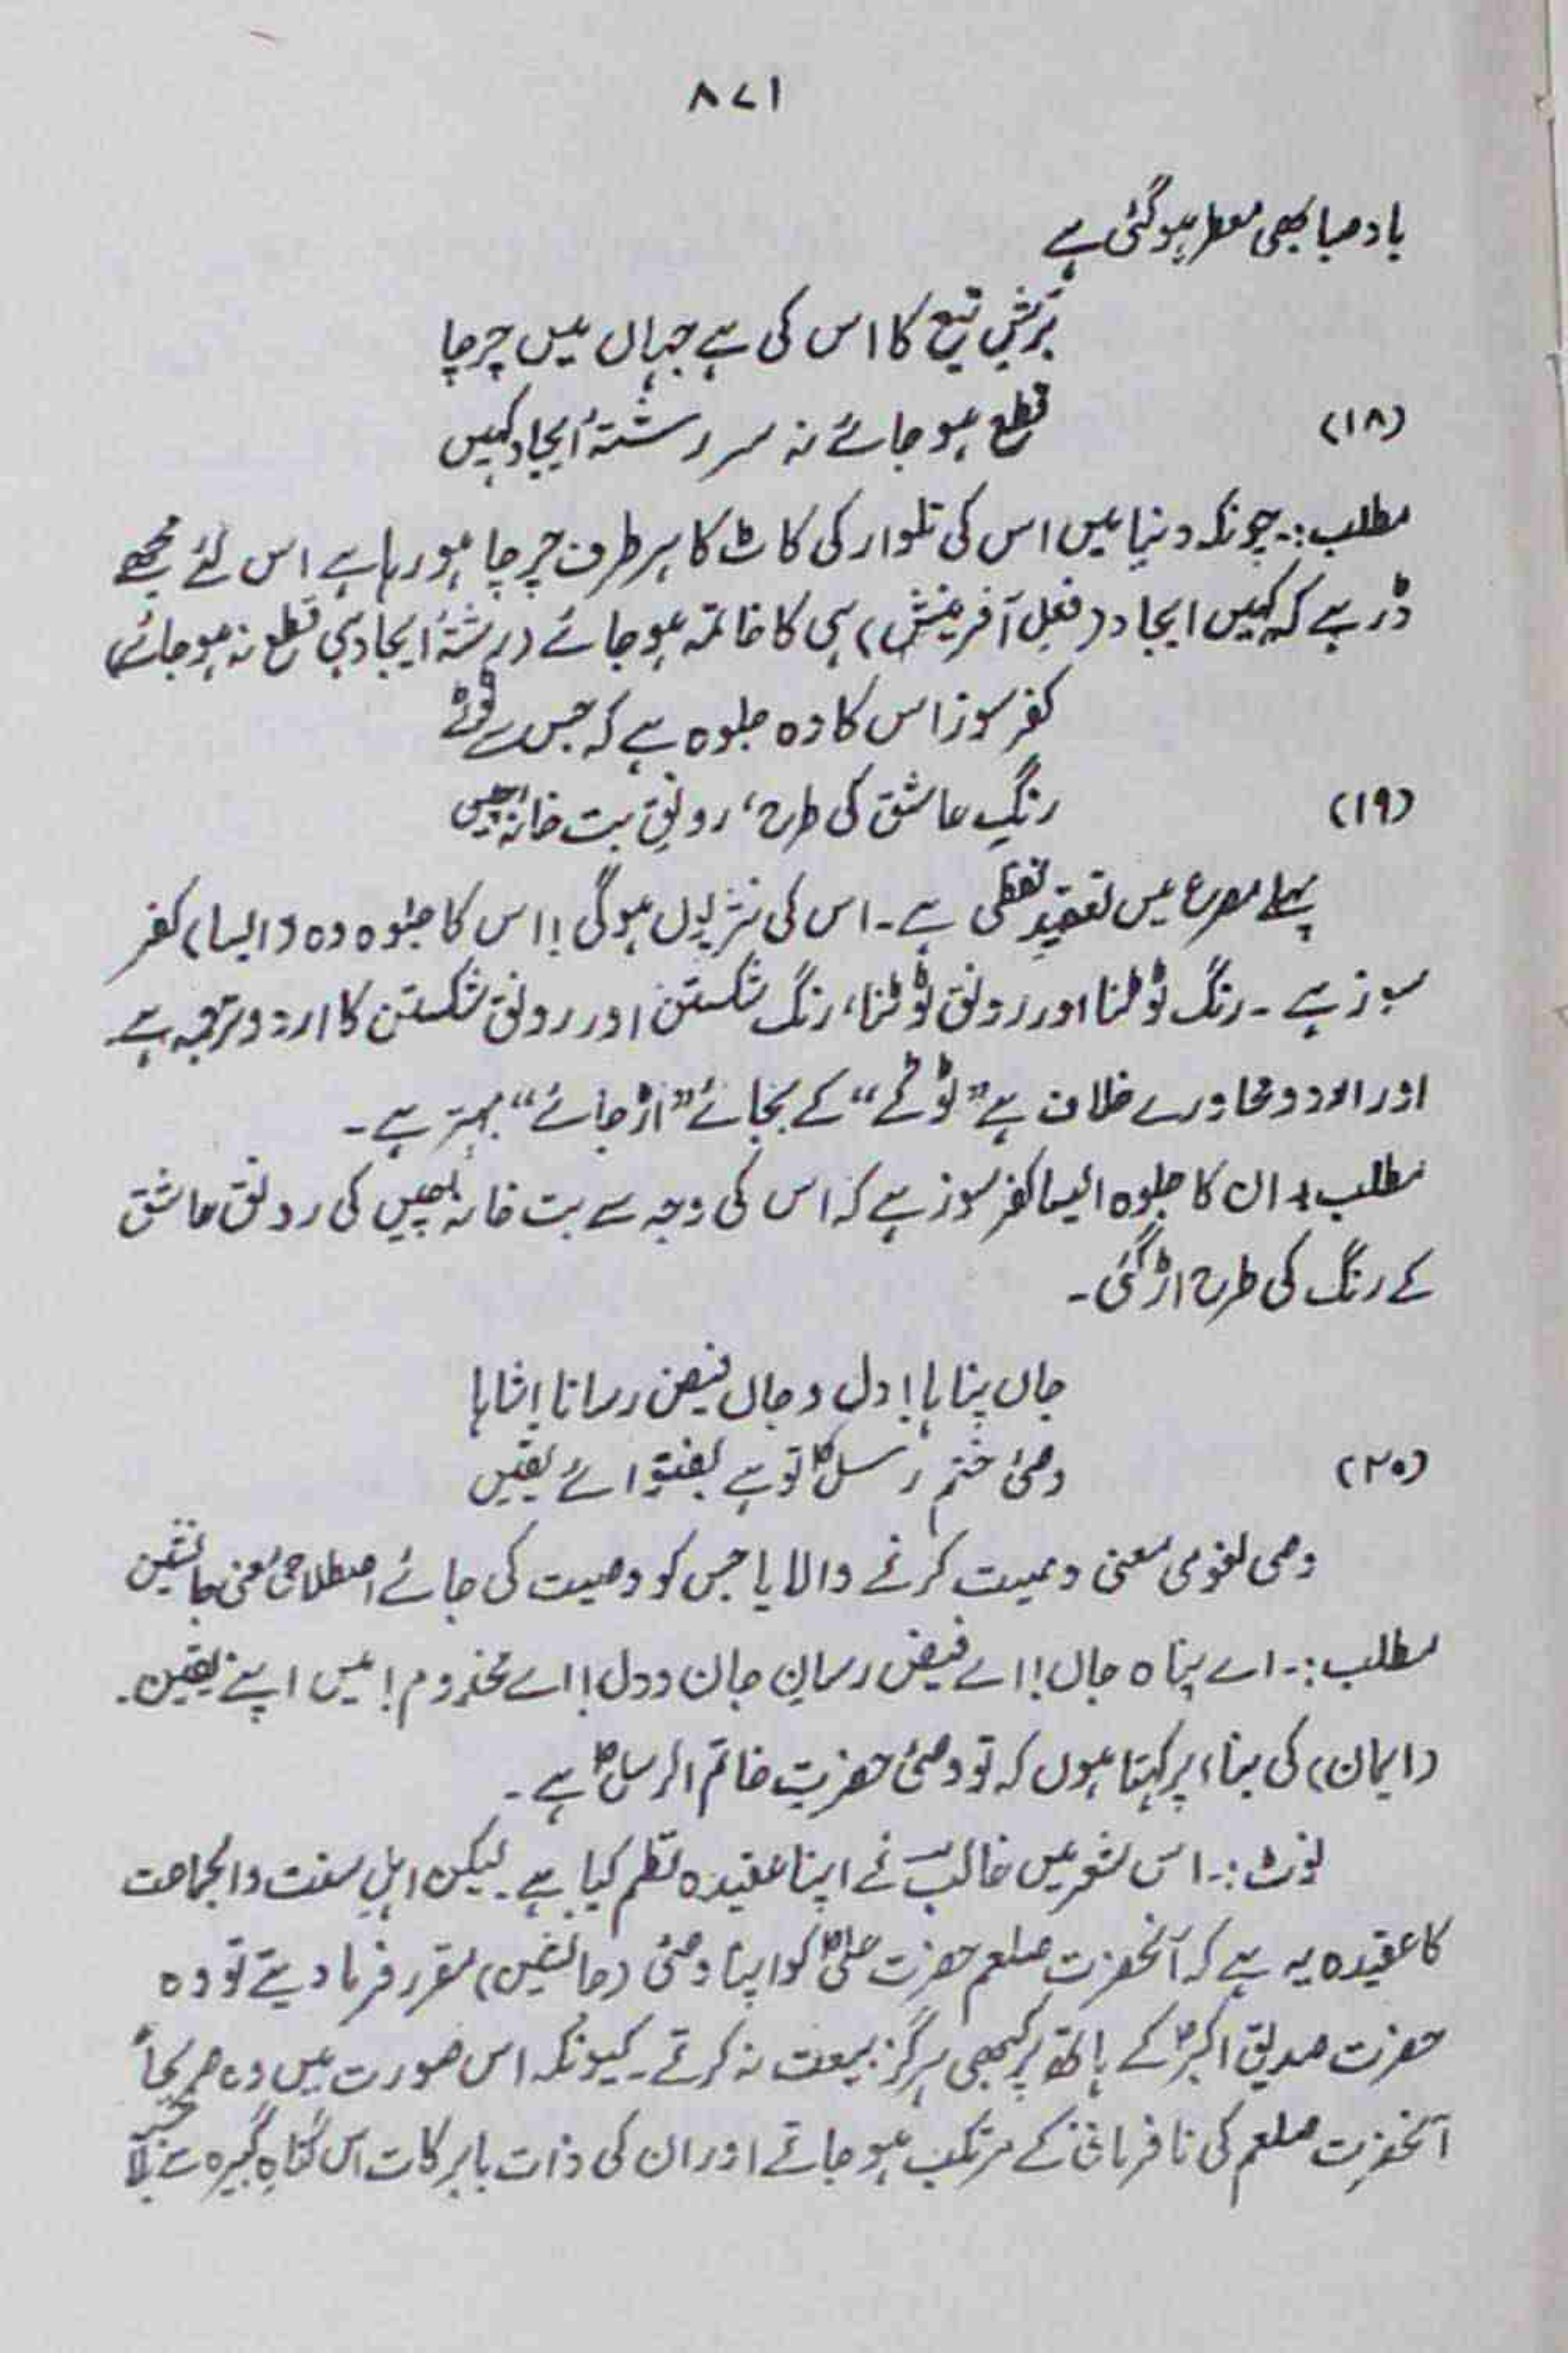 ۸۷۱
باد صبا بھی معطر ہو گئی ہے
بُرشِ تیغ کا اس کی ہے جہاں میں چرچا
(۱۸)
قطع ہو جائے نہ سر رشتۂ ایجاد کہیں
مطلب:۔ چونکہ دنیا میں اس کی تلوار کی کاٹ کا ہر طرف چرچا ہو رہا ہے اس لئے مجھے
ڈر ہے کہ کہیں ایجاد (فعلِ آفرینش) ہی کا خاتمہ ہو جائے (رشتۂ ایجاد ہی قطع نہ ہو جائے)
کفر سوز اس کا وہ جلوہ ہے کہ جس سے ٹوٹے
(۱۹)
رنگِ عاشق کی طرح، رونقِ بت خانۂ چیں
پہلے مصرع میں تعقیدِ لفظی ہے۔ اس کی نثر یوں ہو گی! اس کا جلوہ وہ (ایسا) کفر
سوز ہے۔ رنگ ٹوٹنا اور رونق ٹوٹنا، رنگ شکستن اور رونق شکستن کا اردو ترجمہ ہے۔
اور اردو محاورے خلاف ہے "ٹوٹے" کے بجائے "اڑ جائے" بہتر ہے۔
مطلب:۔ ان کا جلوہ ایسا کفر سوز ہے کہ اس کی وجہ سے بت خانۂ چیں کی رونق عاشق
کے رنگ کی طرح اڑ گئی۔
جاں پناہا! دل و جاں فیض رسانا! شاہا
(۲۰)
وصئ ختم رسلؐ تو ہے بفتوائے یقیں
وصی لغوی معنی وصیت کرنے والا یا جس کو وصیت کی جائے اصطلاحی معنی جانشین
مطلب:۔ اے پناہ جاں! اے فیض رسانِ جان و دل! اے مخدوم! میں اپنے یقین۔
(ایمان) کی بناء پر کہتا ہوں کہ تو وصئ حضرت خاتم الرسلؐ ہے۔
نوٹ:۔ اس شعر میں غالبؔ نے اپنا عقیدہ نظم کیا ہے۔ لیکن اہلِ سنت والجماعت
کا عقیدہ یہ ہے کہ آنحضرت صلعم حضرت علیؓ کو اپنا وصی (جانشین) مقرر فرما دیتے تو وہ
حضرت صدیق اکبرؓ کے ہاتھ پر کبھی ہرگز بیعت نہ کرتے۔ کیونکہ اس صورت میں وہ صریحاً
آنحضرت صلعم کی نافرمانی کے مرتکب ہو جاتے اور ان کی ذات بابرکات اس گناہِ کبیرہ سے